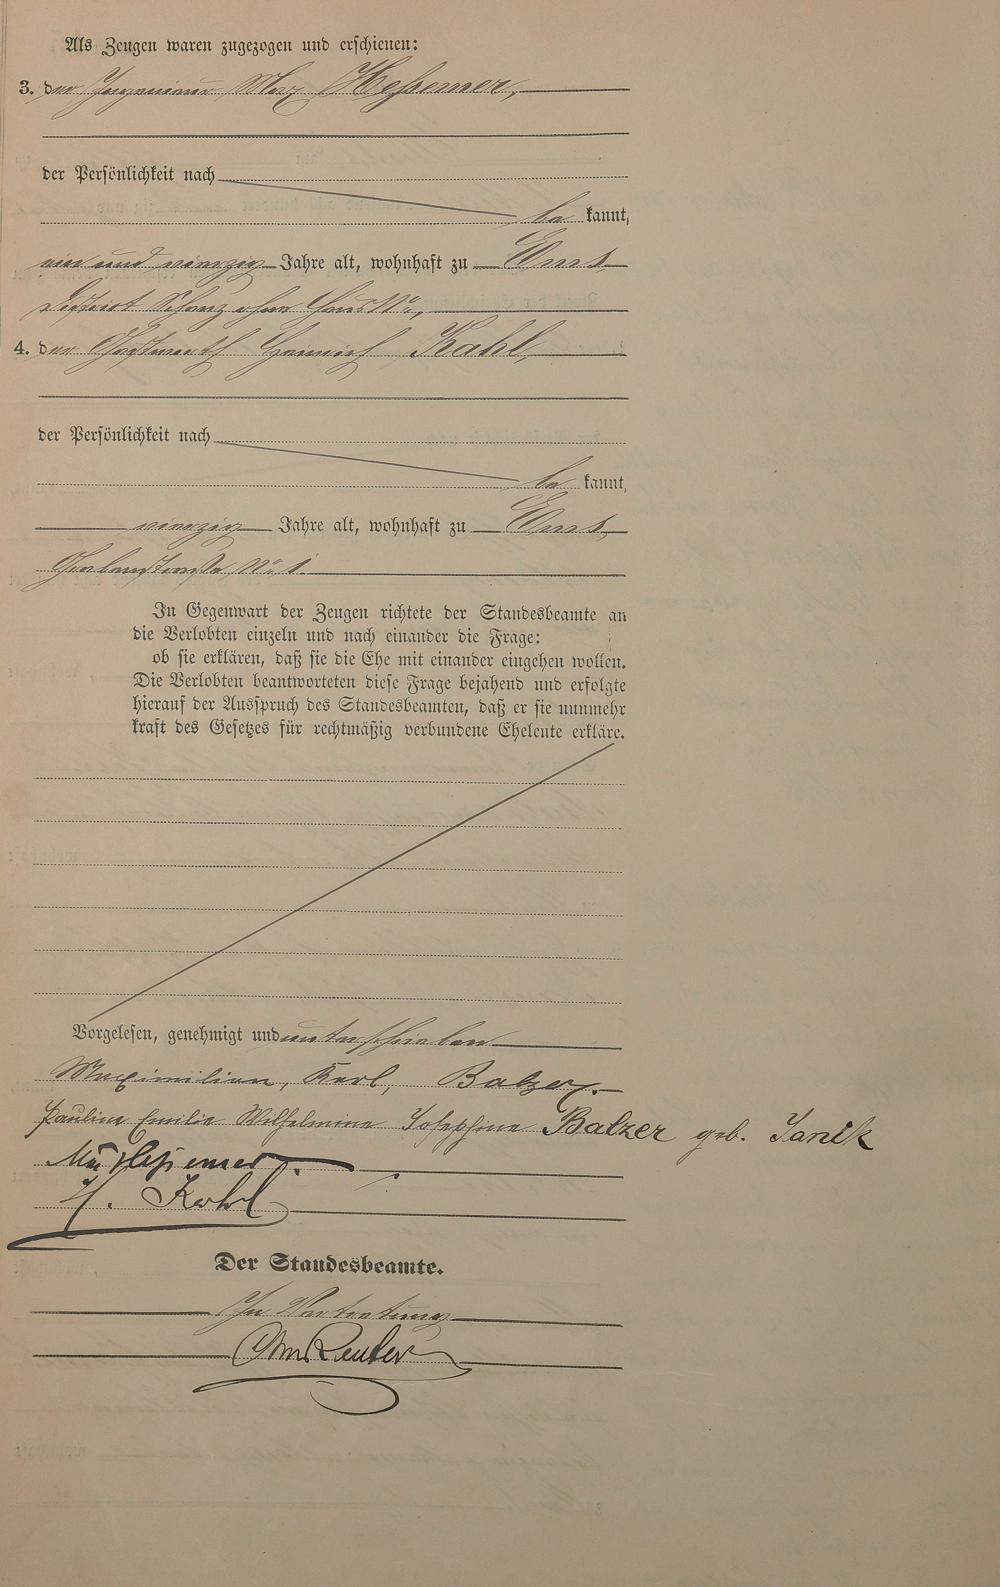 Als Zeugen waren zugezogen und erschienen:
3. der Ingenieur Max Hessemer,
der Persönlichkeit nach
be kannt,
ein und vierzig Jahre alt, wohnhaft zu Ems
District Schanz ohne Haus No,
4. der Gastwirth Heinrich Kahl,
der Persönlichkeit nach
be kannt,
vierzig Jahre alt, wohnhaft zu Ems
No 1.
In Gegenwart der Zeugen richtete der Standesbeamte an
die Verlobten einzeln und nach einander die Frage:
ob sie erklären, daß sie die Ehe mit einander eingehen wollen.
Die Verlobten beantworteten diese Frage bejahend und erfolgte
hierauf der Ausspruch des Standesbeamten, daß er sie nunmehr
kraft des Gesetzes für rechtmäßig verbundene Eheleute erkläre.
Vorgelesen, genehmigt und unterschrieben
Maximilian, Karl, Balzer.
Pauline Emilie Wilhelmine Josephine Balzer geb. Janik
Max Hessemer.
H. Kahl
Der Standesbeamte.
In Vertretung
Reuter